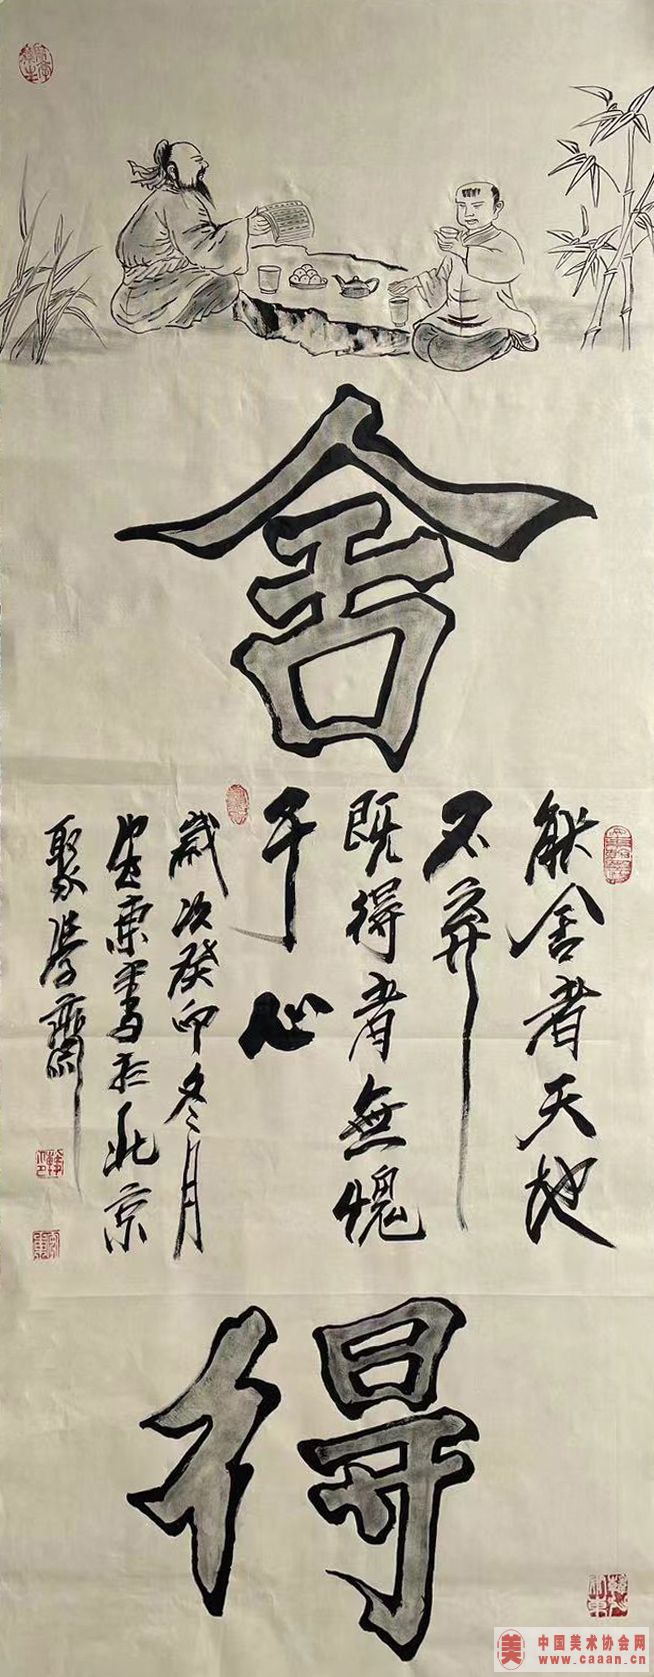 舍
能舍者天地
不弃
既得者無愧
于心
歲次癸卯冬月
書於北京
聚 齋
得
美 中国美术协会网
www.caaan.cn